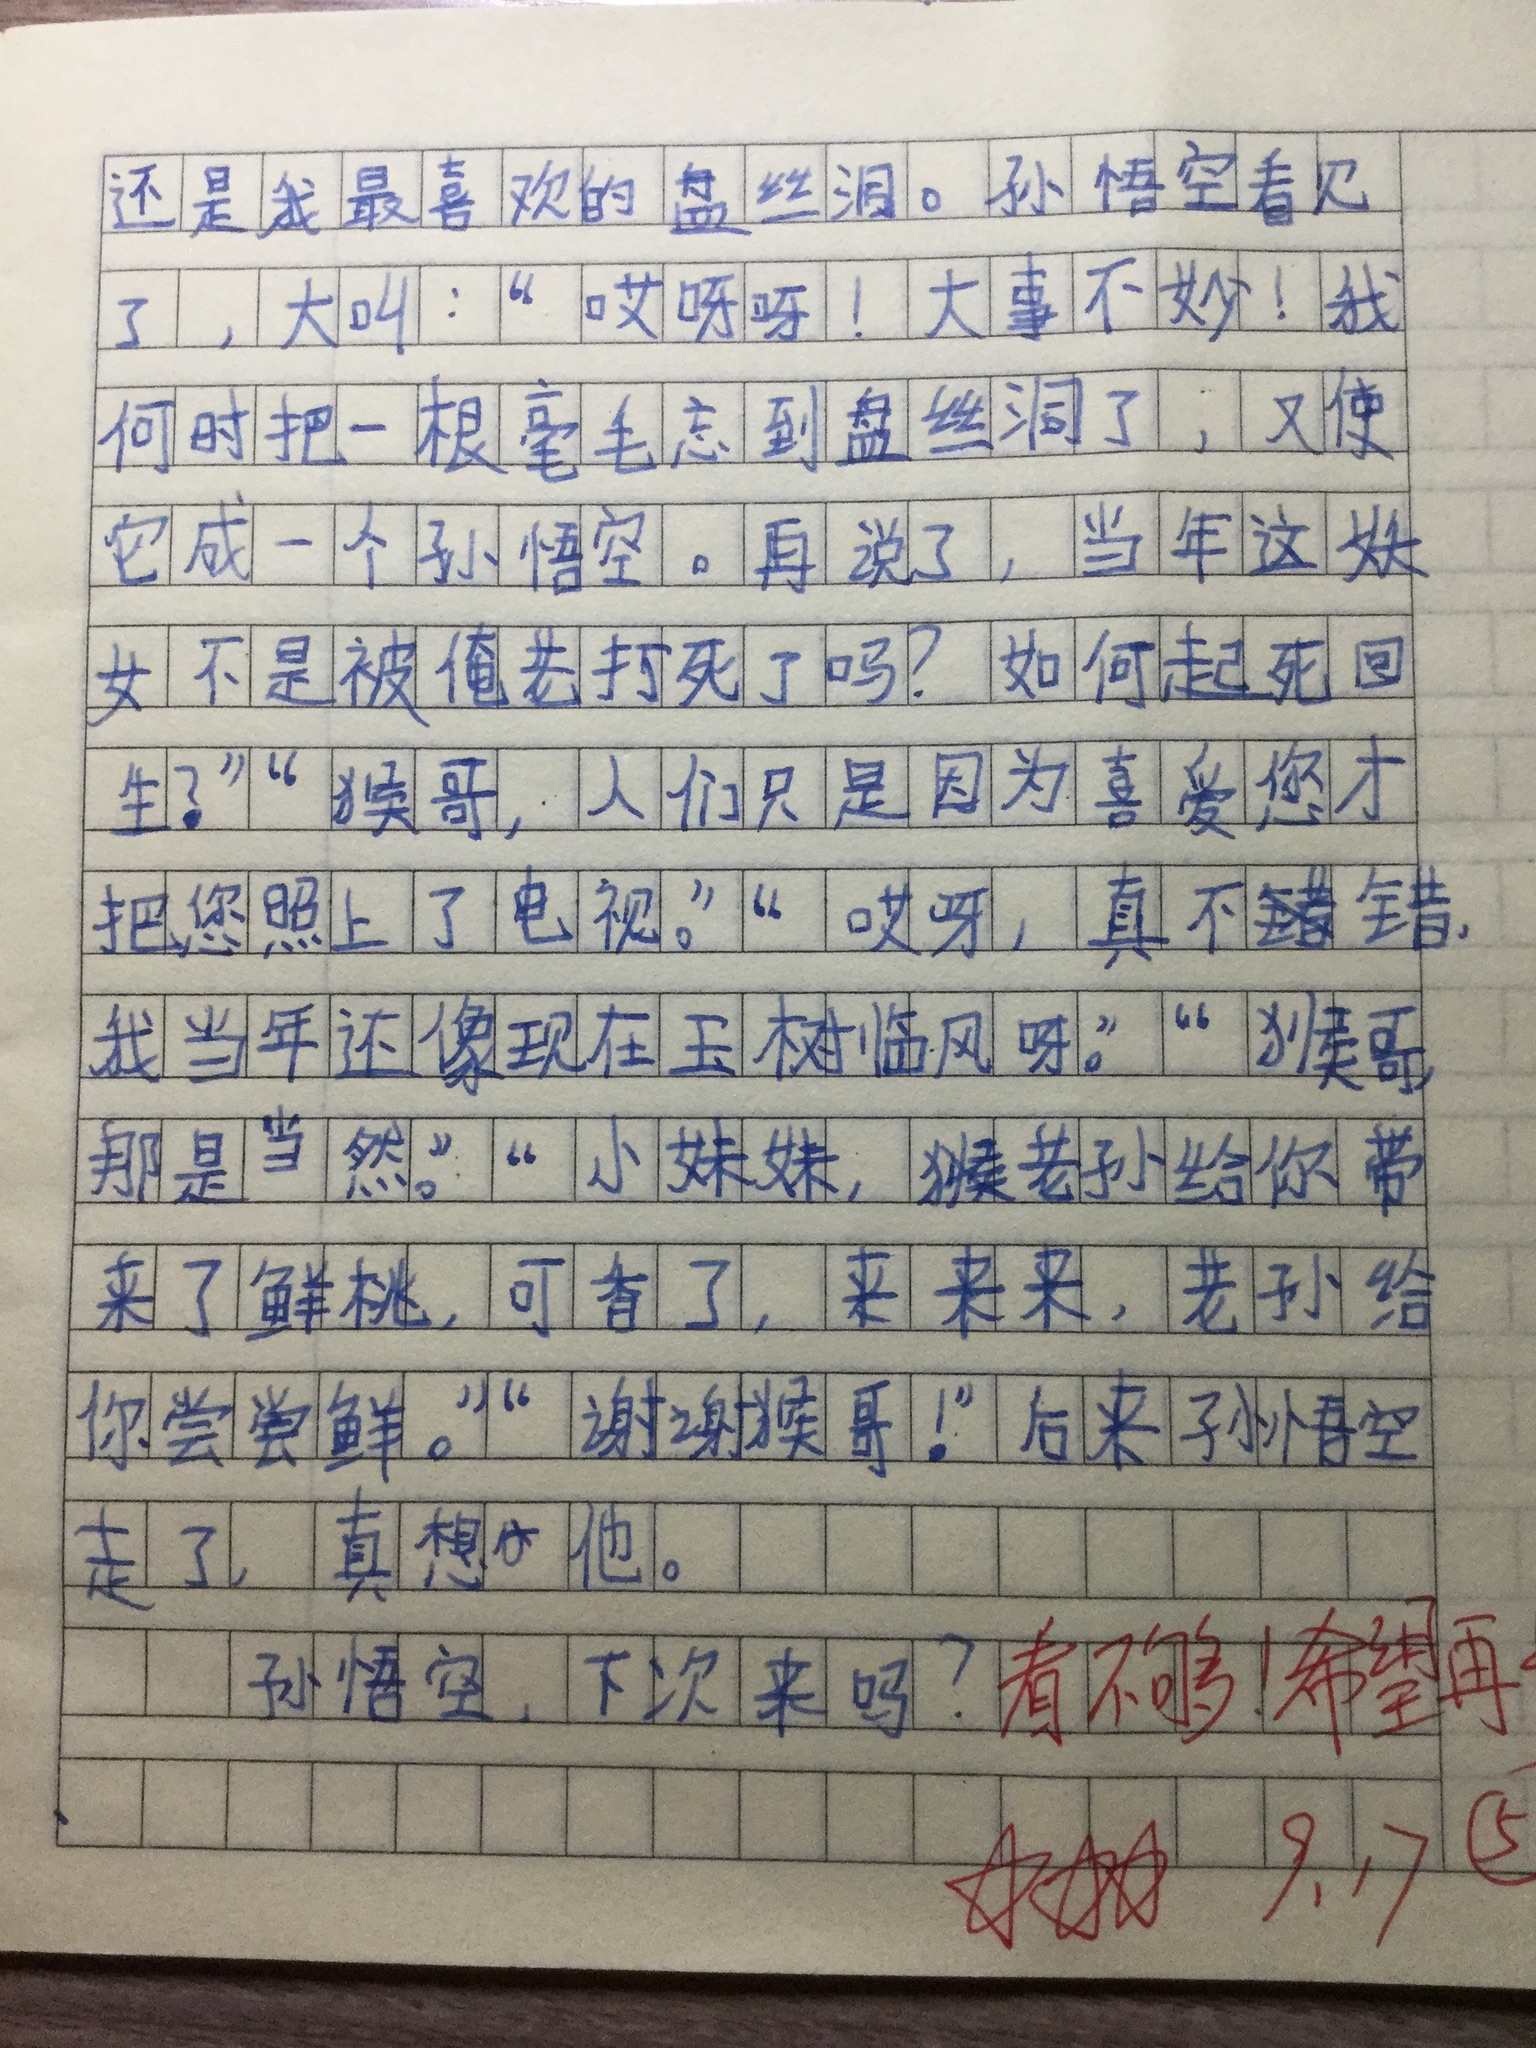 还是我最喜欢的盘丝洞。孙悟空看见
了，大叫：“哎呀呀！大事不妙！我
何时把一根毫毛忘到盘丝洞了，又使
它成一个孙悟空。再说了，当年这妖
女不是被俺老打死了吗？如何起死回
生？”“猴哥，人们只是因为喜爱您才
把您照上了电视。”“哎呀，真不错，
我当年还像现在玉树临风呀。”“猴哥，
那是当然。”“小妹妹，猴老孙给你带
来了鲜桃，可香了，来来来，老孙给
你尝尝鲜。”“谢谢猴哥！”后来孙悟空
走了，真想他。
孙悟空，下次来吗？看不够！希望再
9.17 ⑤